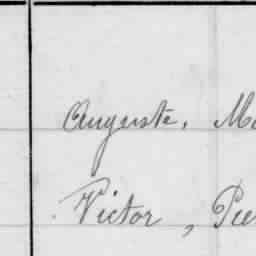 Auguste, Ma
Victor, Pie